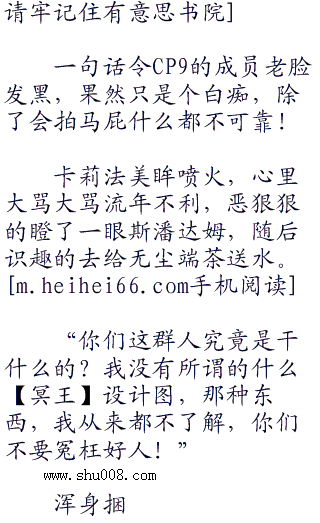 请牢记住有意思书院]
一句话令CP9的成员老脸
发黑，果然只是个白痴，除
了会拍马屁什么都不可靠！
卡莉法美眸喷火，心里
大骂大骂流年不利，恶狠狠
的瞪了一眼斯潘达姆，随后
识趣的去给无尘端茶送水。
[m.heihei66.com手机阅读]
“你们这群人究竟是干
什么的？我没有所谓的什么
【冥王】设计图，那种东
西，我从来都不了解，你们
不要冤枉好人！”
www.shu008.com
浑身捆